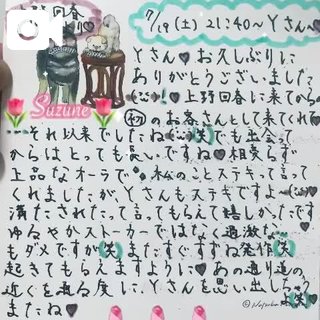 上野回春
7/19(土)21:40〜Yさん♡
Yさん♡お久しぶりに
ありがとうございました
!♡上野回春に来てから
初のお客さんとして来てくれ♡
Suzune
…それ以来でしたね 笑でも出会って
からはとっても長いですね♡相変らず
上品なオーラで 私のことステキって言って
くれましたがYさんもステキですよ
満たされたって言ってもらえて嬉しかったです
ゆるやかストーカーではなく過激な
もダメですが笑またすずすず発作笑
起きてもらえますように♡あの通り道の
近くを通る度に、Yさんを思い出しちゃう
またね♡ 笑